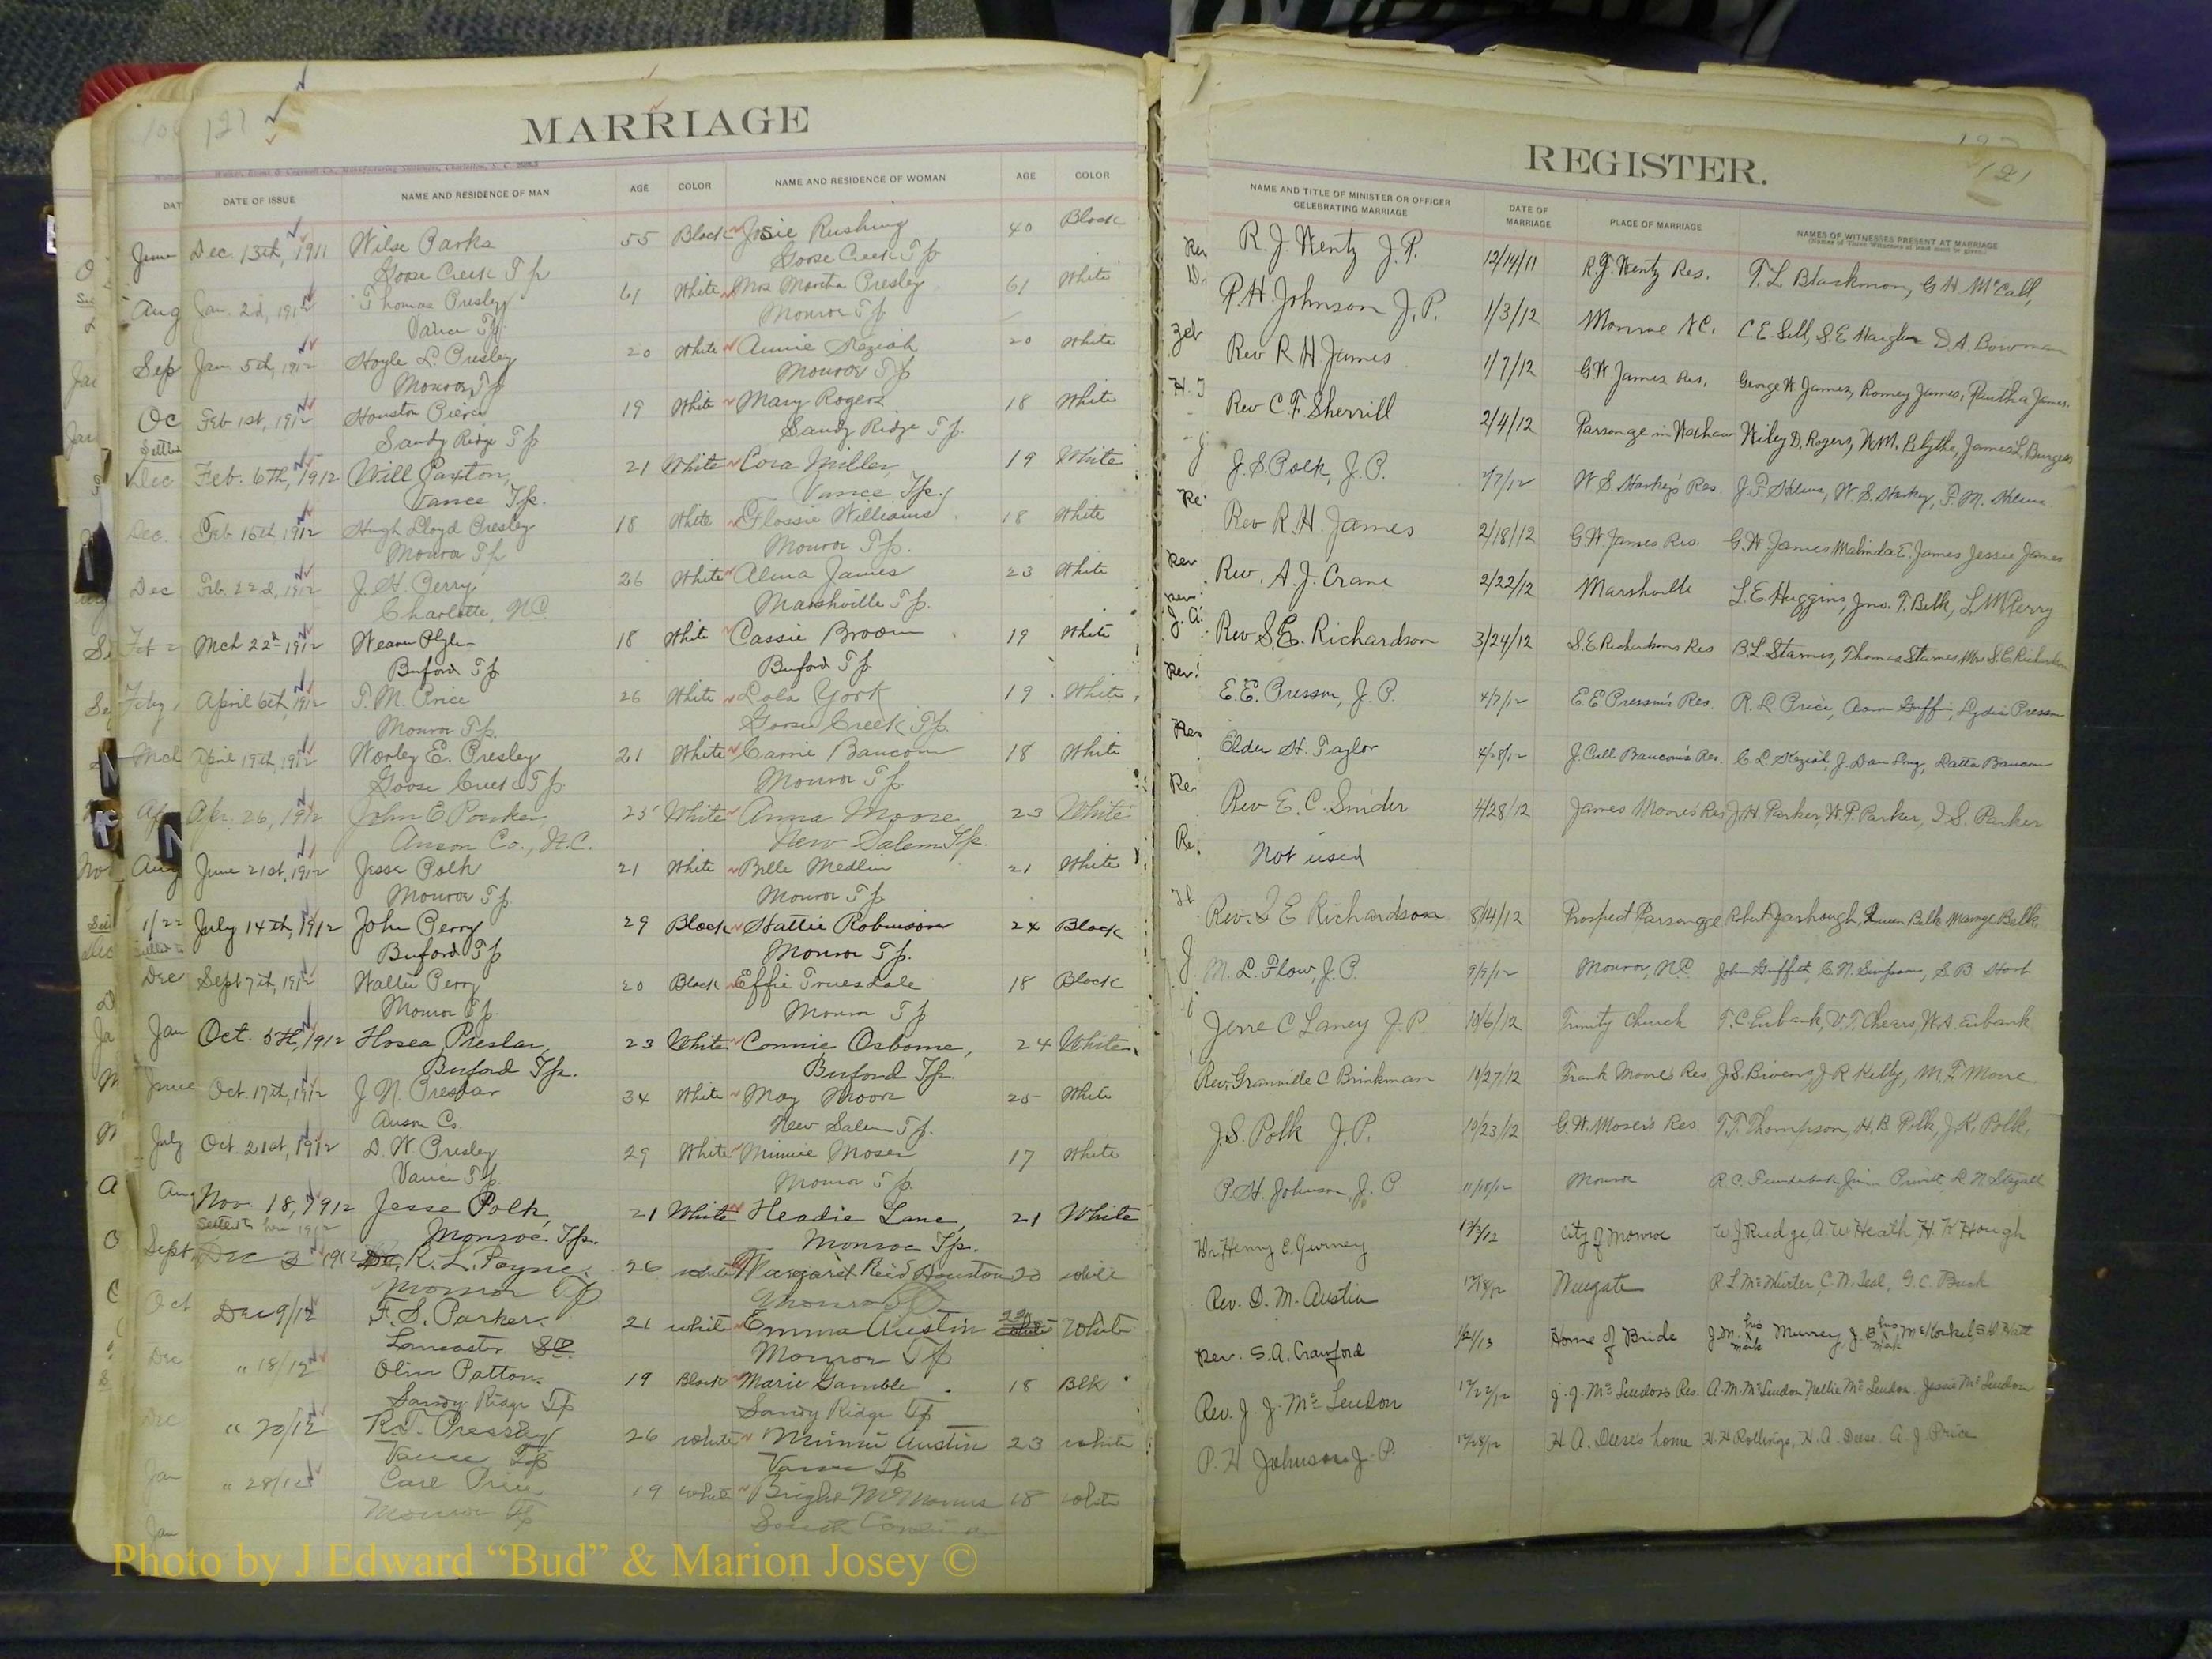 MARRIAGE
121
Walker, Evans & Cogswell Co., Manufacturing Stationers, Charleston, S. C.
DATE OF ISSUE NAME AND RESIDENCE OF MAN AGE COLOR NAME AND RESIDENCE OF WOMAN AGE COLOR
Dec. 13th, 1911 Wilse Parks 55 Black Josie Rushing 40 Black
Goose Creek Tp Goose Creek Tp
Jan. 2d, 1912 Thomas Presley 61 White Mrs Martha Presley 61 White
Vance Tp. Monroe Tp
Jan. 5th, 1912 Hoyle L. Presley 20 White Annie Keziah 20 White
Monroe Tp Monroe Tp
Feb 1st, 1912 Houston Pierce 19 White Mary Rogers 18 White
Sandy Ridge Tp Sandy Ridge Tp.
Feb. 6th, 1912 Will Paxton, 21 White Cora Miller, 19 White
Vance Tp. Vance Tp.
Feb 16th, 1912 Hugh Lloyd Presley 18 White Flossie Williams 18 White
Monroe Tp Monroe Tp.
Feb. 22d, 1912 J. H. Perry 26 White Alma James 23 White
Charlotte, NC Marshville Tp.
Mch 22d 1912 Plyler 18 White Cassie Broom 19 White
Buford Tp Buford Tp
April 6th, 1912 T. M. Price 26 White Lola York 19 White
Monroe Tp. Goose Creek Tp.
April 19th, 1912 Worley E. Presley 21 White Carrie Baucom 18 White
Goose Creek Tp Monroe Tp.
Apr. 26, 1912 John E Parker, 25 White Anna Moore 23 White
Anson Co., N.C. New Salem Tp.
June 21st, 1912 Jesse Polk 21 White Belle Medlin 21 White
Monroe Tp Monroe Tp
July 14th, 1912 John Perry 29 Black Hattie Robinson 24 Black
Buford Tp Monroe Tp.
Sept 7th, 1912 Walter Perry 20 Black Effie Truesdale 18 Black
Monroe Tp. Monroe Tp
Oct. 5th, 1912 Hosea Preslar, 23 White Connie Osborne, 24 White
Buford Tp. Buford Tp.
Oct. 17th, 1912 J. N. Preslar 34 White May Moore 25 White
Anson Co. New Salem Tp.
Oct. 21st, 1912 D. W Presley 29 White Minnie Moser 17 White
Vance Tp. Monroe Tp.
Nov. 18, 1912 Jesse Polk, 21 White Headie Lane, 21 White
Settled 1912 Monroe Tp. Monroe Tp.
Dec 3 1912 Dr. R. L. Payne. 26 white Margaret Reid Houston 20 white
Monroe Tp Monroe Tp
Dec 9/12 F. S. Parker. 21 white Emma Austin 22 White
Lancaster SC Monroe Tp
" 18/12 Olin Patton 19 Black Marie Gamble 18 Blk
Sandy Ridge Tp Sandy Ridge Tp
" 20/12 R. F. Pressley 26 white Minnie Austin 23 white
Vance Tp Vance Tp
" 28/12 Carl Price 19 white Bright McManus 18 white
Monroe Tp South Carolina
REGISTER.
121
NAME AND TITLE OF MINISTER OR OFFICER CELEBRATING MARRIAGE DATE OF MARRIAGE PLACE OF MARRIAGE NAMES OF WITNESSES PRESENT AT MARRIAGE
(Names of Three Witnesses at least must be given.)
R. J. Wentz J. P. 12/14/11 R. J. Wentz Res. T. L. Blackmon, G H McCall,
P. H. Johnson J. P. 1/3/12 Monroe N.C. C. E. Sell, S. E. Haigler D. A. Bowman
Rev R H James 1/7/12 G W James Res, George W James, Romey James, Reutha James.
Rev C. F. Sherrill 2/4/12 Parsonage in Waxhaw Wiley D. Rogers, W.M. Blythe, James L. Burgess
J. S. Polk, J. P. 2/7/12 W S. Starkey's Res J. F. Helms, W. S. Starkey, F. M. Helms
Rev R. H. James 2/18/12 G W James Res. G. W James Malinda E. James Jessie James
Rev. A. J. Crane 2/22/12 Marshville L. E. Huggins, Jno. T. Belk, L. M. Perry
Rev S. E. Richardson 3/24/12 S. E Richardsons Res B. L. Starnes, Thomas Starnes, Mrs S. E Richardson
E. E. Presson, J. P. 4/7/12 E. E Presson's Res. R. L Price, Aaron Griffin, Lydia Presson
Elder H. Taylor 4/28/12 J. Cull Baucom's Res. C. L. Keziah, J. Dan Long, Latta Baucom
Rev E. C. Snider 4/28/12 James Moore's Res J. H. Parker, W. P. Parker, I. S. Parker
Not used
Rev. S E Richardson 8/14/12 Prospect Parsonage Robert Yarbough, Queen Belk Belk
M. L. Flow, J. P. 9/9/12 Monroe, NC. John Griffith, C. N. Simpson, S B Hart
Jerre C Laney J. P. 10/6/12 Trinity Church T. C Eubank, V. T. Chears, W. A. Eubank
Rev. Granville C Brinkman 10/27/12 Frank Moore's Res J. S. Bivens J R Kelly, M. F. Moore
J. S. Polk J. P. 10/23/12 G. W. Moser's Res. T. F. Thompson, H. B Polk, J. K, Polk,
P. H. Johnson, J. P. 11/18/12 Monroe R. C. Funderburk Jim Privett R. N Stegall
Henry E. Gurney 12/3/12 City of Monroe W J Rudge, A. W Heath H. W Hough
Rev. D. M. Austin 12/18/12 Wingate R L McWhirter, C. N. Teal, G. C. Buck
Rev. S. A. Crawford 1/21/13 Home of Bride J. M. his mark Murray, J. B. his mark McCorkel, S. W. Hiatt
Rev. J. J. Mc Lendon 12/22/12 J. J. Mc Lendon's Res. A. M. McLendon Nellie Mc Lendon. Jessie Mc Lendon
P. H Johnson J. P. 12/28/12 H A. Deese's home H. H Rollings, H. A. Deese. A. J. Price
Photo by J Edward “Bud” & Marion Josey ©